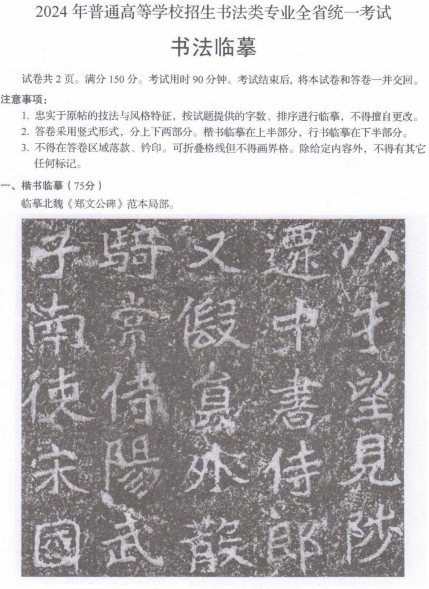 2024 年普通高等学校招生书法类专业全省统一考试
书法临摹
试卷共 2 页。满分 150 分。考试用时 90 分钟。考试结束后, 将本试卷和答卷一并交回。
注意事项:
1. 忠实于原帖的技法与风格特征, 按试题提供的字数、排序进行临摹, 不得擅自更改。
2. 答卷采用竖式形式, 分上下两部分。楷书临摹在上半部分, 行书临摹在下半部分。
3. 不得在答卷区域落款、钤印。可折叠格线但不得画界格。除给定内容外, 不得有其它
任何标记。
一、楷书临摹 (75分)
临摹北魏《郑文公碑》范本局部。
以才望見陟
遷中書侍郎
又假員外散
騎常侍陽武
子南使宋國